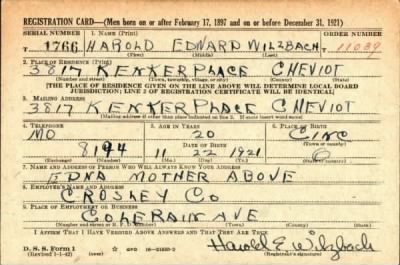 REGISTRATION CARD—(Men born on or after February 17, 1897 and on or before December 31, 1921)
SERIAL NUMBER 1. NAME (Print) ORDER NUMBER
1766 HAROLD EDWARD WILZBACH 11039
(First) (Middle) (Last)
2. PLACE OF RESIDENCE (Print)
3817 KENKER PLACE CHEVIOT
(Number and street) (Town, township, village, or city) (County) (State)
[THE PLACE OF RESIDENCE GIVEN ON THE LINE ABOVE WILL DETERMINE LOCAL BOARD
JURISDICTION; LINE 2 OF REGISTRATION CERTIFICATE WILL BE IDENTICAL]
3. MAILING ADDRESS
3817 KENKER PLACE CHEVIOT
[Mailing address if other than place indicated on line 2. If same insert word same]
4. TELEPHONE 5. AGE IN YEARS 6. PLACE OF BIRTH
MO 20 CINC
DATE OF BIRTH (Town or county)
8194 11 22 1921 O
(Exchange) (Number) (Mo.) (Day) (Yr.) (State or country)
7. NAME AND ADDRESS OF PERSON WHO WILL ALWAYS KNOW YOUR ADDRESS
EDNA MOTHER ABOVE
8. EMPLOYER'S NAME AND ADDRESS
CROSLEY CO
9. PLACE OF EMPLOYMENT OR BUSINESS
COLERAIN AVE
(Number and street or R. F. D. number) (Town) (County) (State)
I AFFIRM THAT I HAVE VERIFIED ABOVE ANSWERS AND THAT THEY ARE TRUE.
D. S. S. Form 1
(Revised 1-1-42) (over) Harold E. Wilzbach
(Registrant's signature)